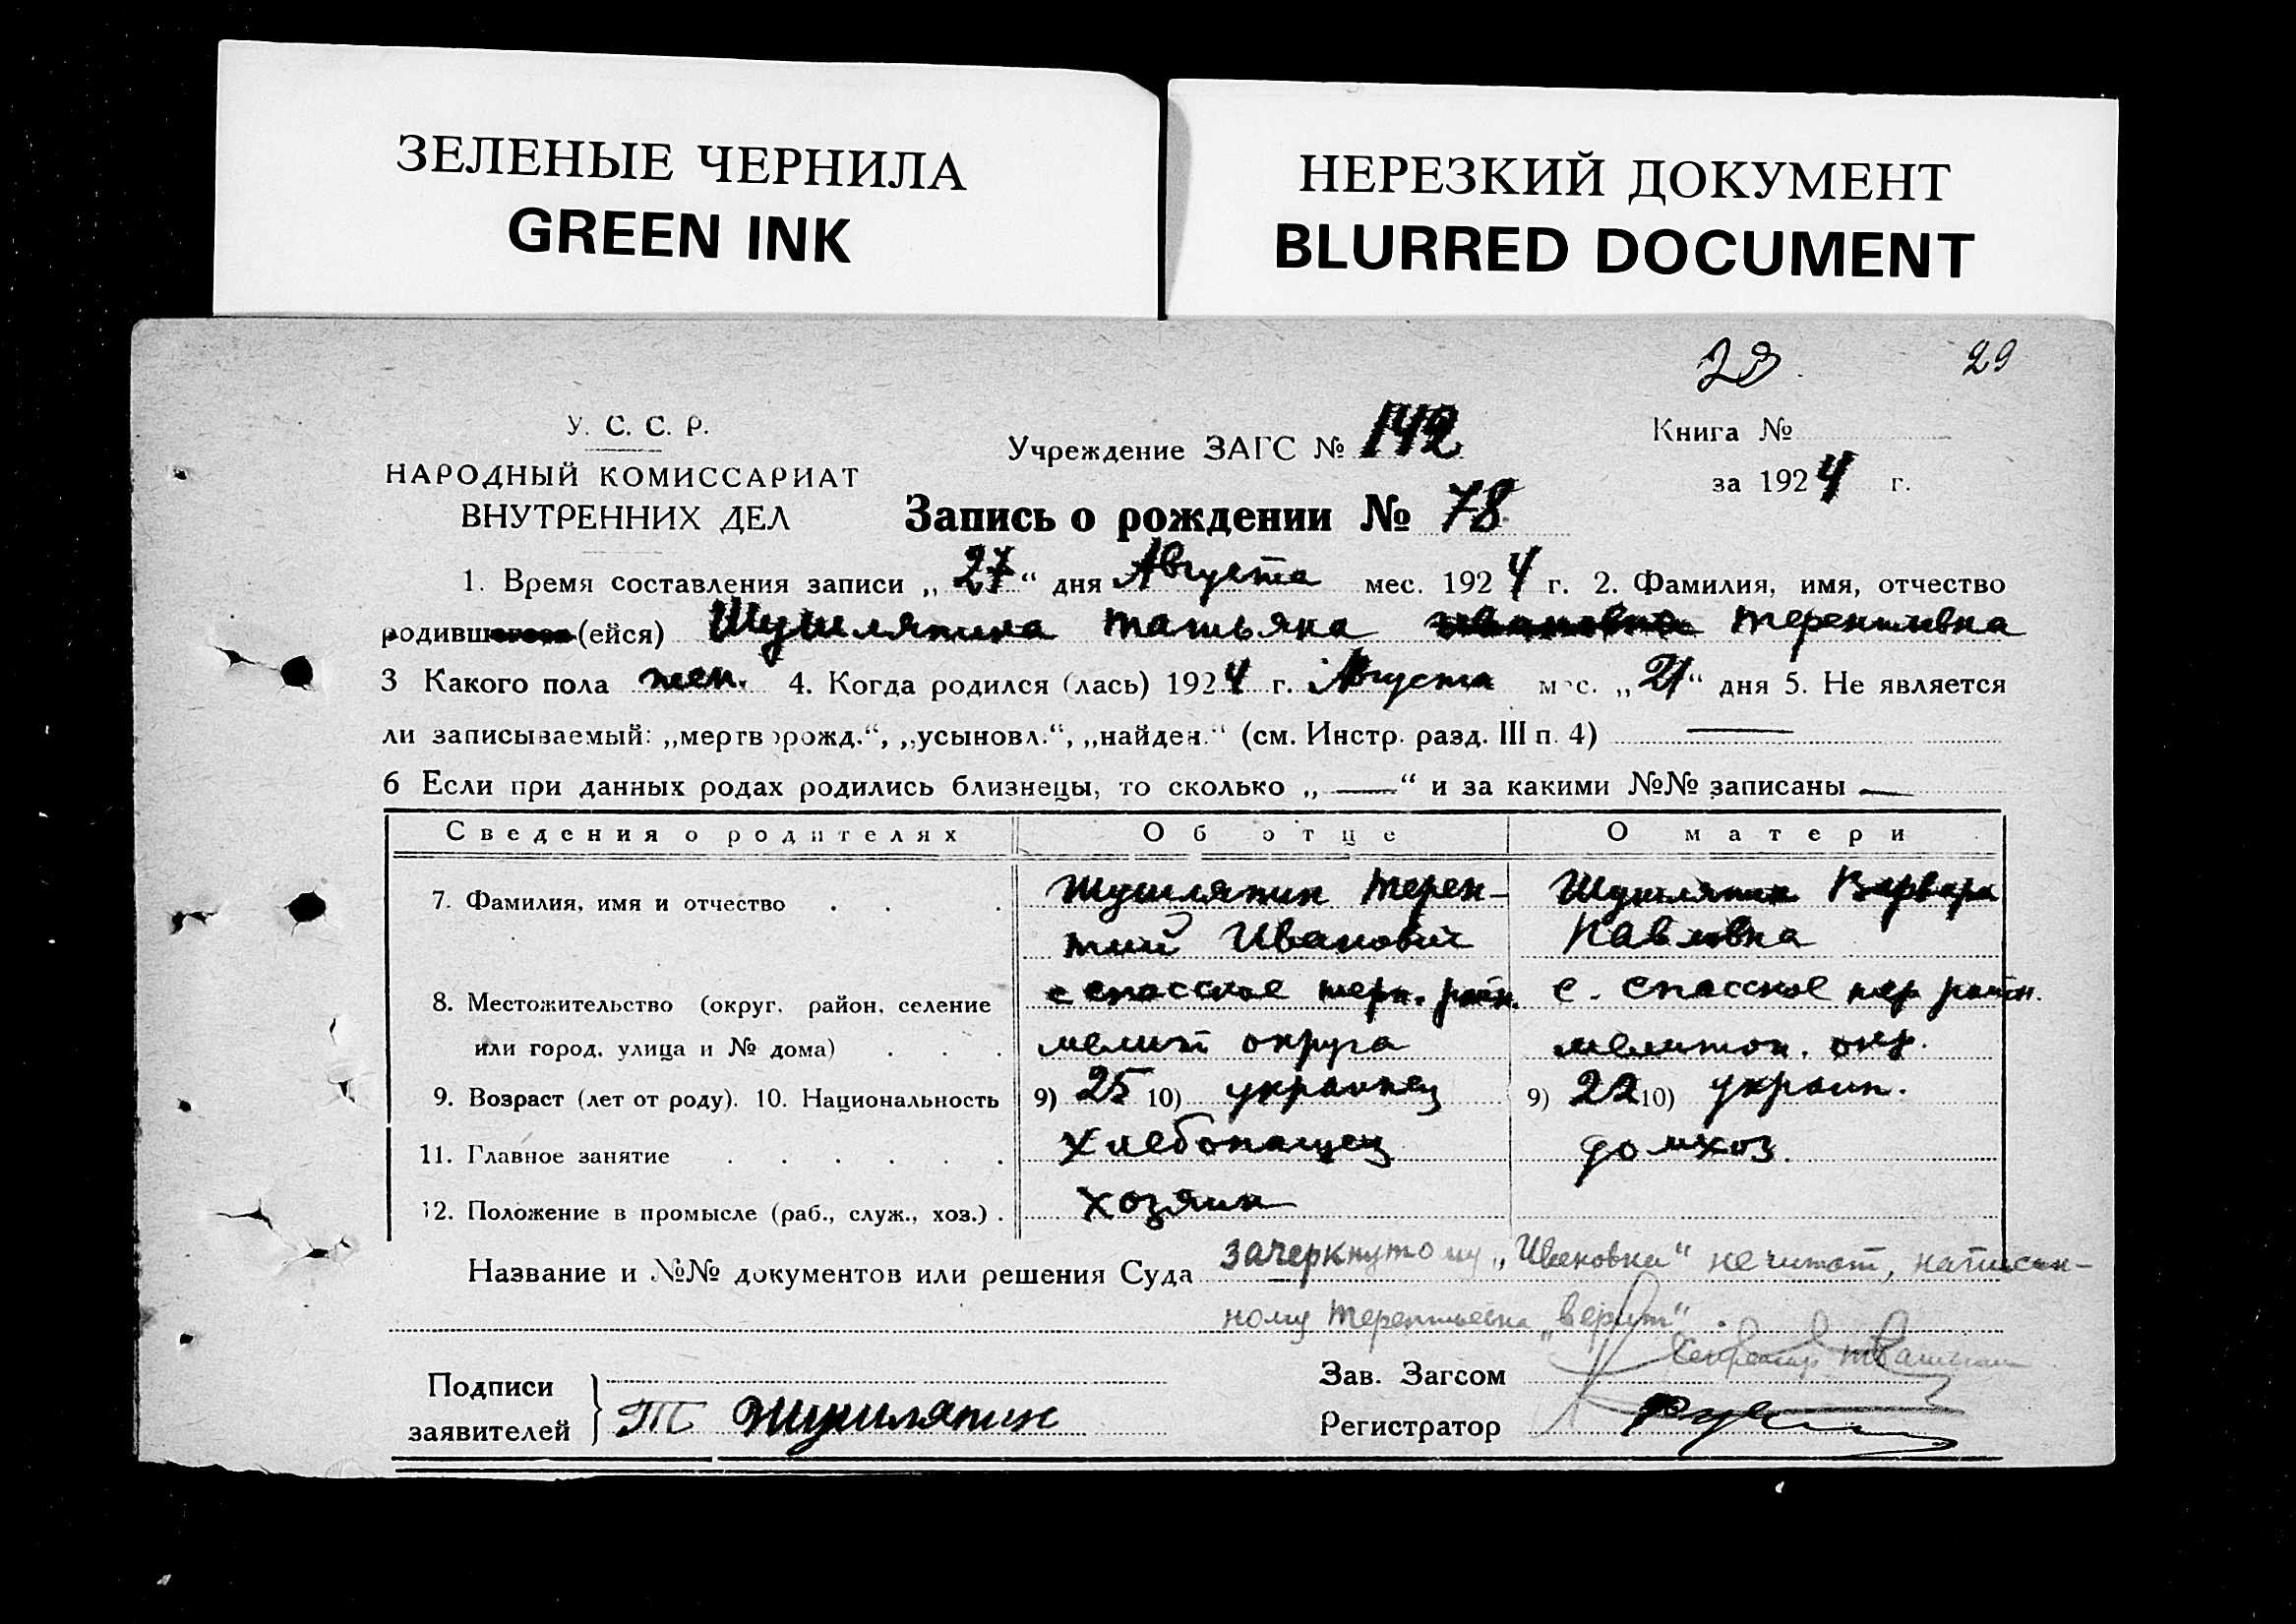 ЗЕЛЕНЫЕ ЧЕРНИЛА
GREEN INK
НЕРЕЗКИЙ ДОКУМЕНТ
BLURRED DOCUMENT
29
У. С. С. Р.
НАРОДНЫЙ КОМИССАРИАТ
ВНУТРЕННИХ ДЕЛ
Учреждение ЗАГС № 142
Книга №
за 1924 г.
Запись о рождении № 78
1. Время составления записи „27“ дня Августа мес. 1924 г. 2. Фамилия, имя, отчество
родившегося (ейся) Шушляпина Татьяна Ивановна Терентиевна
3 Какого пола жен. 4. Когда родился (лась) 1924 г. Августа мес. „21“ дня 5. Не является
ли записываемый: „мертворожд.“, „усыновл.“, „найден.“ (см. Инстр. разд. III п. 4) —
6 Если при данных родах родились близнецы, то сколько „—“ и за какими №№ записаны —
Сведения о родителях Об отце О матери
7. Фамилия, имя и отчество . . . Шушляпин Терен- Шушляпин Варвара
тий Иванович Павловна
8. Местожительство (округ, район, селение с Спасское терп. район. с. Спасское тер район.
или город, улица и № дома) . . . мелит округа мелитоп. окр.
9. Возраст (лет от роду). 10. Национальность 9) 25 10) украинец 9) 22 10) украин.
11. Главное занятие . . . . . . Хлебопашец домхоз.
12. Положение в промысле (раб., служ., хоз.) . хозяин
Название и №№ документов или решения Суда зачеркнутому „Ивановна“ не читат, написан-
ному Терентьевна „верит“.
Секретарь
Подписи
заявителей } Т Шушляпин
Зав. Загсом
Регистратор